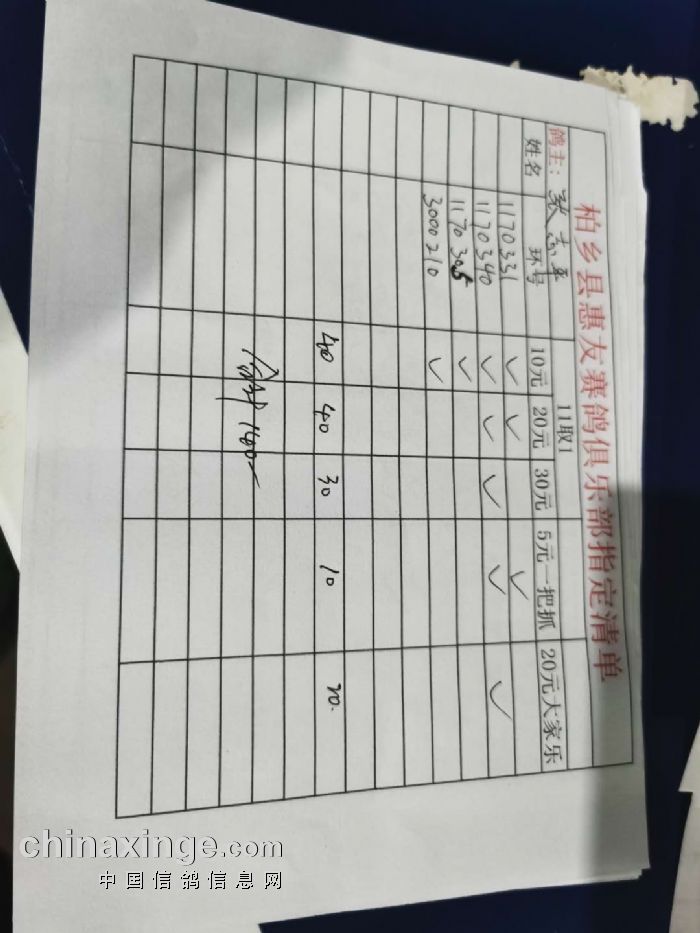 柏乡县惠友赛鸽俱乐部指定清单
鸽主: 张志
11取1
姓名 环号 10元 20元 30元 5元一把抓 20元大家乐
1170331 ✓ ✓ ✓
1170340 ✓ ✓ ✓ ✓ ✓
1170305 ✓
3000210 ✓
40 40 30 10 20.
合计 140
chinaxinge.com
中国信鸽信息网